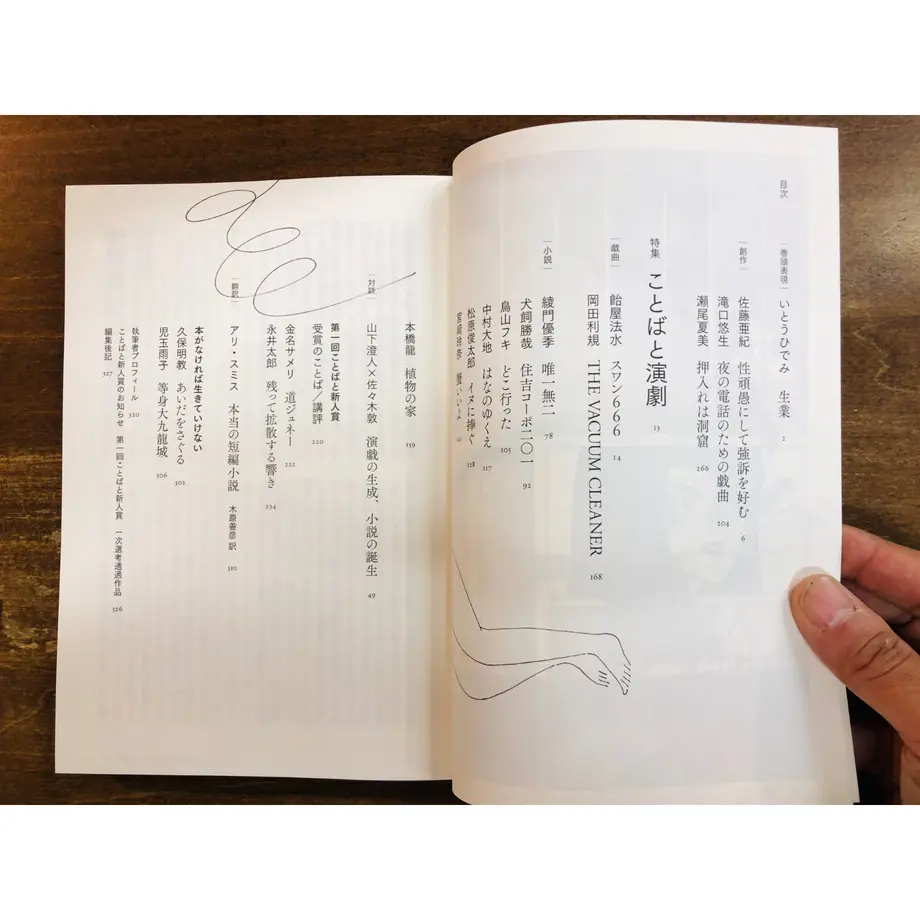 目次
巻頭表現 いとうひでみ 生業 2
創作 佐藤亜紀 性頑愚にして強訴を好む 6
滝口悠生 夜の電話のための戯曲 204
瀬尾夏美 押入れは洞窟 266
特集 ことばと演劇 13
戯曲 飴屋法水 スワン666 14
岡田利規 THE VACUUM CLEANER 168
小説 綾門優季 唯一無二 78
犬飼勝哉 住吉コーポ二〇一 92
鳥山フキ どこ行った 105
中村大地 はなのゆくえ 117
松原俊太郎 イヌに捧ぐ 128
宮崎玲奈
本橋龍 植物の家 159
対談 山下澄人×佐々木敦 演戯の生成、小説の誕生 49
第一回ことばと新人賞
受賞のことば/講評 220
金名サメリ 道ジュネー 222
永井太郎 残って拡散する響き 234
翻訳 アリ・スミス 本当の短編小説 木原善彦 訳 310
本がなければ生きていけない
久保明教 あいだをさぐる 302
児玉雨子 等身大九龍城 306
執筆者プロフィール 320
ことばと新人賞のお知らせ 第一回ことばと新人賞 一次選考通過作品 326
編集後記 327